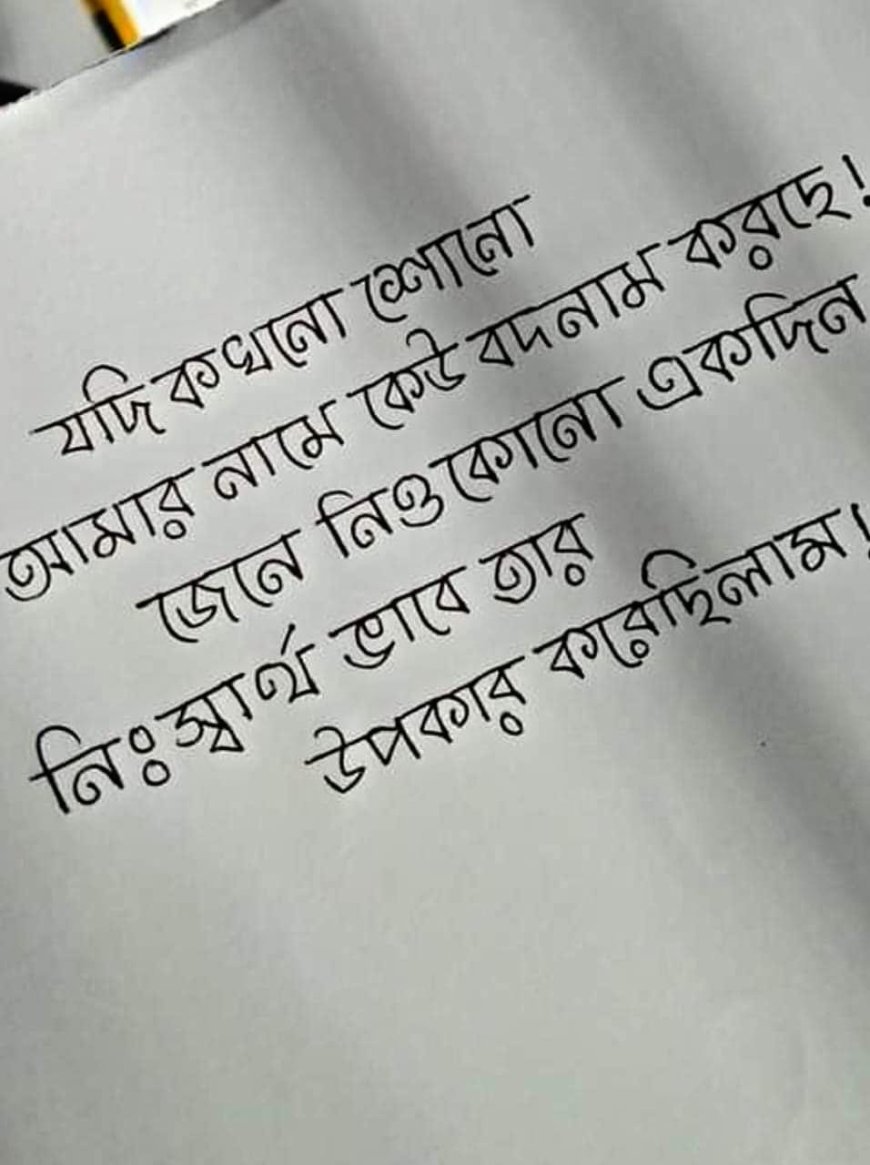 যদি কখনো শোনো
আমার নামে কেউ বদনাম করছে!
জেনে নিও কোনো একদিন
নিঃস্বার্থ ভাবে তার
উপকার করেছিলাম!